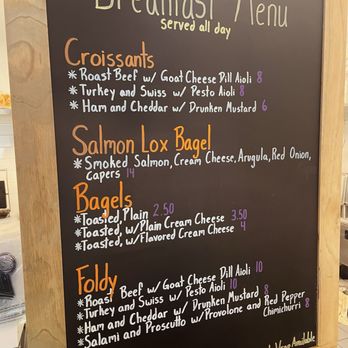 Breakfast Menu
served all day
Croissants
* Roast Beef w/ Goat Cheese Dill Aioli 8
* Turkey and Swiss w/ Pesto Aioli 8
* Ham and Cheddar w/ Drunken Mustard 6
Salmon Lox Bagel
* Smoked Salmon, Cream Cheese, Arugula, Red Onion,
capers 14
Bagels
* Toasted, Plain 2.50
* Toasted, w/Plain Cream Cheese 3.50
* Toasted, w/Flavored Cream Cheese 4
Foldy
* Roast Beef w/ Goat Cheese Dill Aioli 10
* Turkey and Swiss w/ Pesto Aioli 10
* Ham and Cheddar w/ Drunken Mustard 8
* Salami and Proscutto w/Provolone and Red Pepper
Chimichurri 8
Available